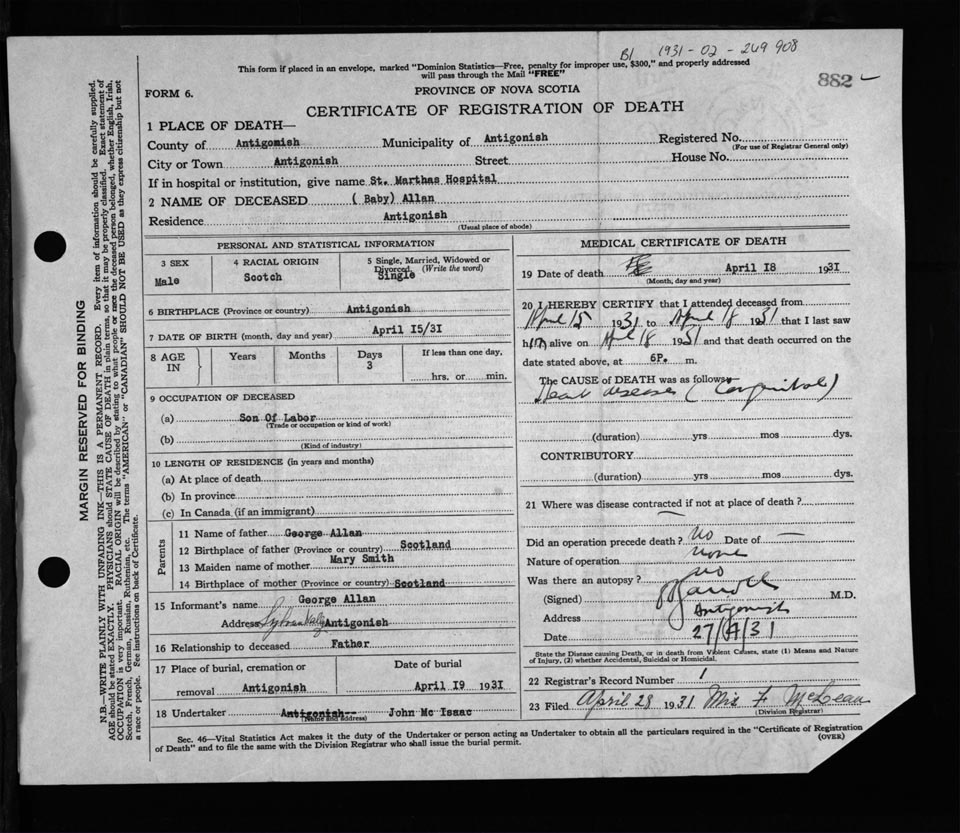 B1 1931-02-249 908
This form if placed in an envelope, marked "Dominion Statistics—Free, penalty for improper use, $300," and properly addressed
will pass through the Mail "FREE"
882
FORM 6.
PROVINCE OF NOVA SCOTIA
CERTIFICATE OF REGISTRATION OF DEATH
1 PLACE OF DEATH—
County of Antigonish Municipality of Antigonish Registered No.
(For use of Registrar General only)
City or Town Antigonish Street House No.
If in hospital or institution, give name St. Marthas Hospital
2 NAME OF DECEASED ( Baby) Allan
Residence Antigonish
(Usual place of abode)
PERSONAL AND STATISTICAL INFORMATION
3 SEX Male
4 RACIAL ORIGIN Scotch
5 Single, Married, Widowed or
Divorced (Write the word)
Single
6 BIRTHPLACE (Province or country) Antigonish
7 DATE OF BIRTH (month, day and year) April I5/3I
8 AGE IN Years Months Days 3
If less than one day,
hrs. or min.
9 OCCUPATION OF DECEASED
(a) Son Of Labor
(Trade or occupation or kind of work)
(b)
(Kind of industry)
10 LENGTH OF RESIDENCE (in years and months)
(a) At place of death
(b) In province
(c) In Canada (if an immigrant)
Parents
11 Name of father George Allan
12 Birthplace of father (Province or country) Scotland
13 Maiden name of mother Mary Smith
14 Birthplace of mother (Province or country) Scotland
15 Informant's name George Allan
Address Sylvan Vally Antigonish
16 Relationship to deceased Father
17 Place of burial, cremation or
removal Antigonish
Date of burial
April I9 1931
18 Undertaker Antigonish-- John Mc Isaac
(Name and address)
MEDICAL CERTIFICATE OF DEATH
19 Date of death April I8 1931
(Month, day and year)
20 I HEREBY CERTIFY that I attended deceased from
April 15 1931 to April 18 1931 that I last saw
him alive on April 18 1931 and that death occurred on the
date stated above, at 6P. m.
The CAUSE of DEATH was as follows
Heart disease (Congenital)
(duration) yrs mos dys.
CONTRIBUTORY
(duration) yrs mos dys.
21 Where was disease contracted if not at place of death?
Did an operation precede death? No Date of —
Nature of operation none
Was there an autopsy? no
(Signed) M.D.
Address Antigonish
Date 27/4/31
State the Disease causing Death, or in death from Violent Causes, state (1) Means and Nature
of Injury, (2) whether Accidental, Suicidal or Homicidal.
22 Registrar's Record Number 1
23 Filed April 28 1931 Mrs F McLean
(Division Registrar)
Sec. 46—Vital Statistics Act makes it the duty of the Undertaker or person acting as Undertaker to obtain all the particulars required in the "Certificate of Registration
of Death" and to file the same with the Division Registrar who shall issue the burial permit.
(OVER)
MARGIN RESERVED FOR BINDING
N.B.—WRITE PLAINLY WITH UNFADING INK—THIS IS A PERMANENT RECORD. Every item of information should be carefully supplied.
AGE should be stated EXACTLY. PHYSICIANS should STATE CAUSE OF DEATH in plain terms, so that it may be properly classified. Exact statement of
OCCUPATION is very important. RACIAL ORIGIN will be described by stating to what people or race the deceased person belonged, whether English, Irish,
Scotch, French, German, Russian, Ruthenian, etc. The terms "AMERICAN" or "CANADIAN" SHOULD NOT BE USED as they express citizenship but not
a race or people. See instructions on back of Certificate.